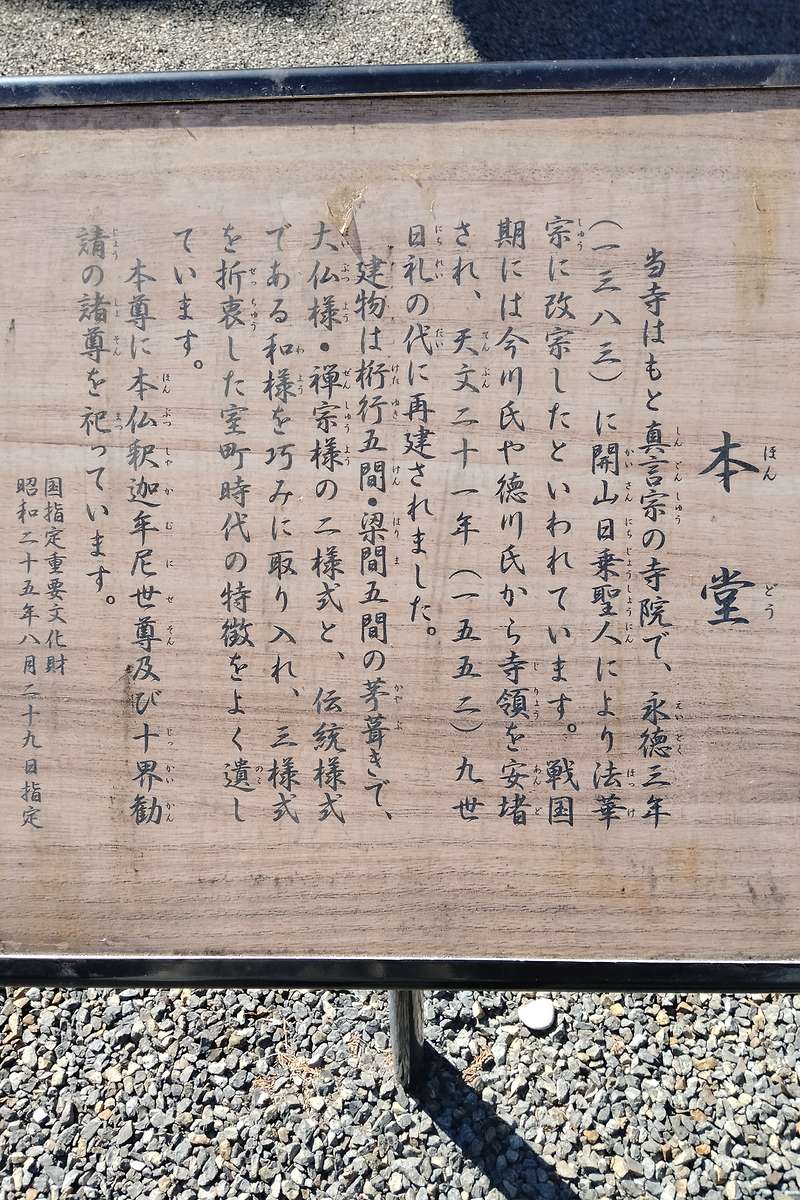 本堂
当寺はもと真言宗の寺院で、永徳三年
(一三八三)に開山日乗聖人により法華
宗に改宗したといわれています。戦国
期には今川氏や徳川氏から寺領を安堵
され、天文二十一年(一五五二)九世
日礼の代に再建されました。
建物は桁行五間・梁間五間の茅葺きで、
大仏様・禅宗様の二様式と、伝統様式
である和様を巧みに取り入れ、三様式
を折衷した室町時代の特徴をよく遺し
ています。
本尊に本仏釈迦牟尼世尊及び十界勧
請の諸尊を祀っています。
国指定重要文化財
昭和二十五年八月二十九日指定